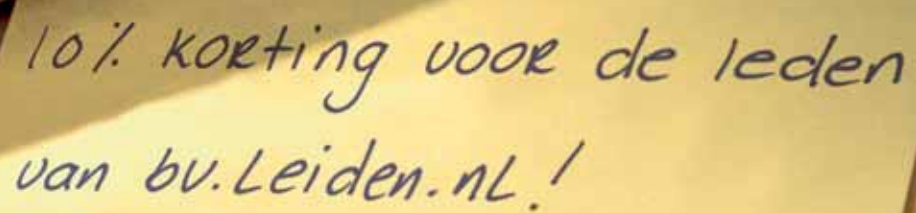 10% korting voor de leden
van bv.Leiden.nl!